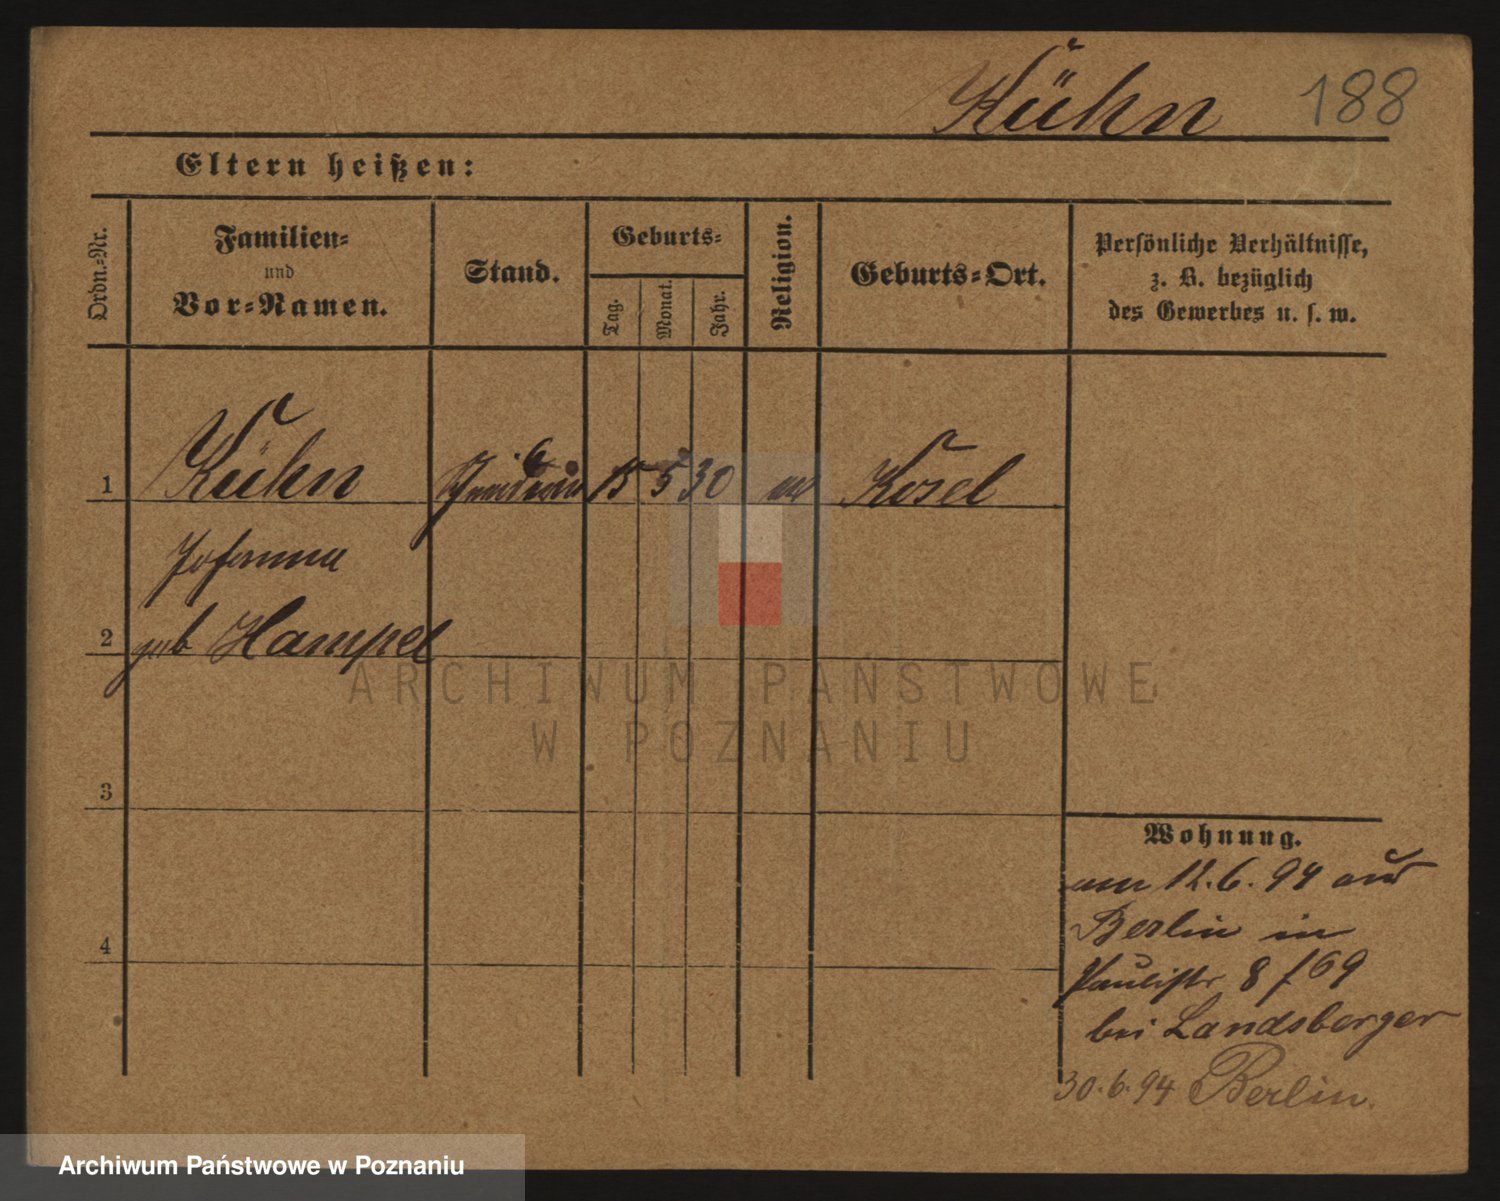 Kühn 188
Eltern heißen:
Ordn.-Nr.
Familien-
und
Vor-Namen.
Stand.
Geburts-
Tag.
Monat.
Jahr.
Religion.
Geburts-Ort.
Persönliche Verhältnisse,
z. B. bezüglich
des Gewerbes u. s. w.
1 Kühn 15 5 30 Kosel
Johanna
2 geb Hampel
ARCHIWUM PAŃSTWOWE
W POZNANIU
3
Wohnung.
am 12.6.94 aus
Berlin in
Paulistr 8 f 69
bei Landsberger
4
30.6.94 Berlin.
Archiwum Państwowe w Poznaniu